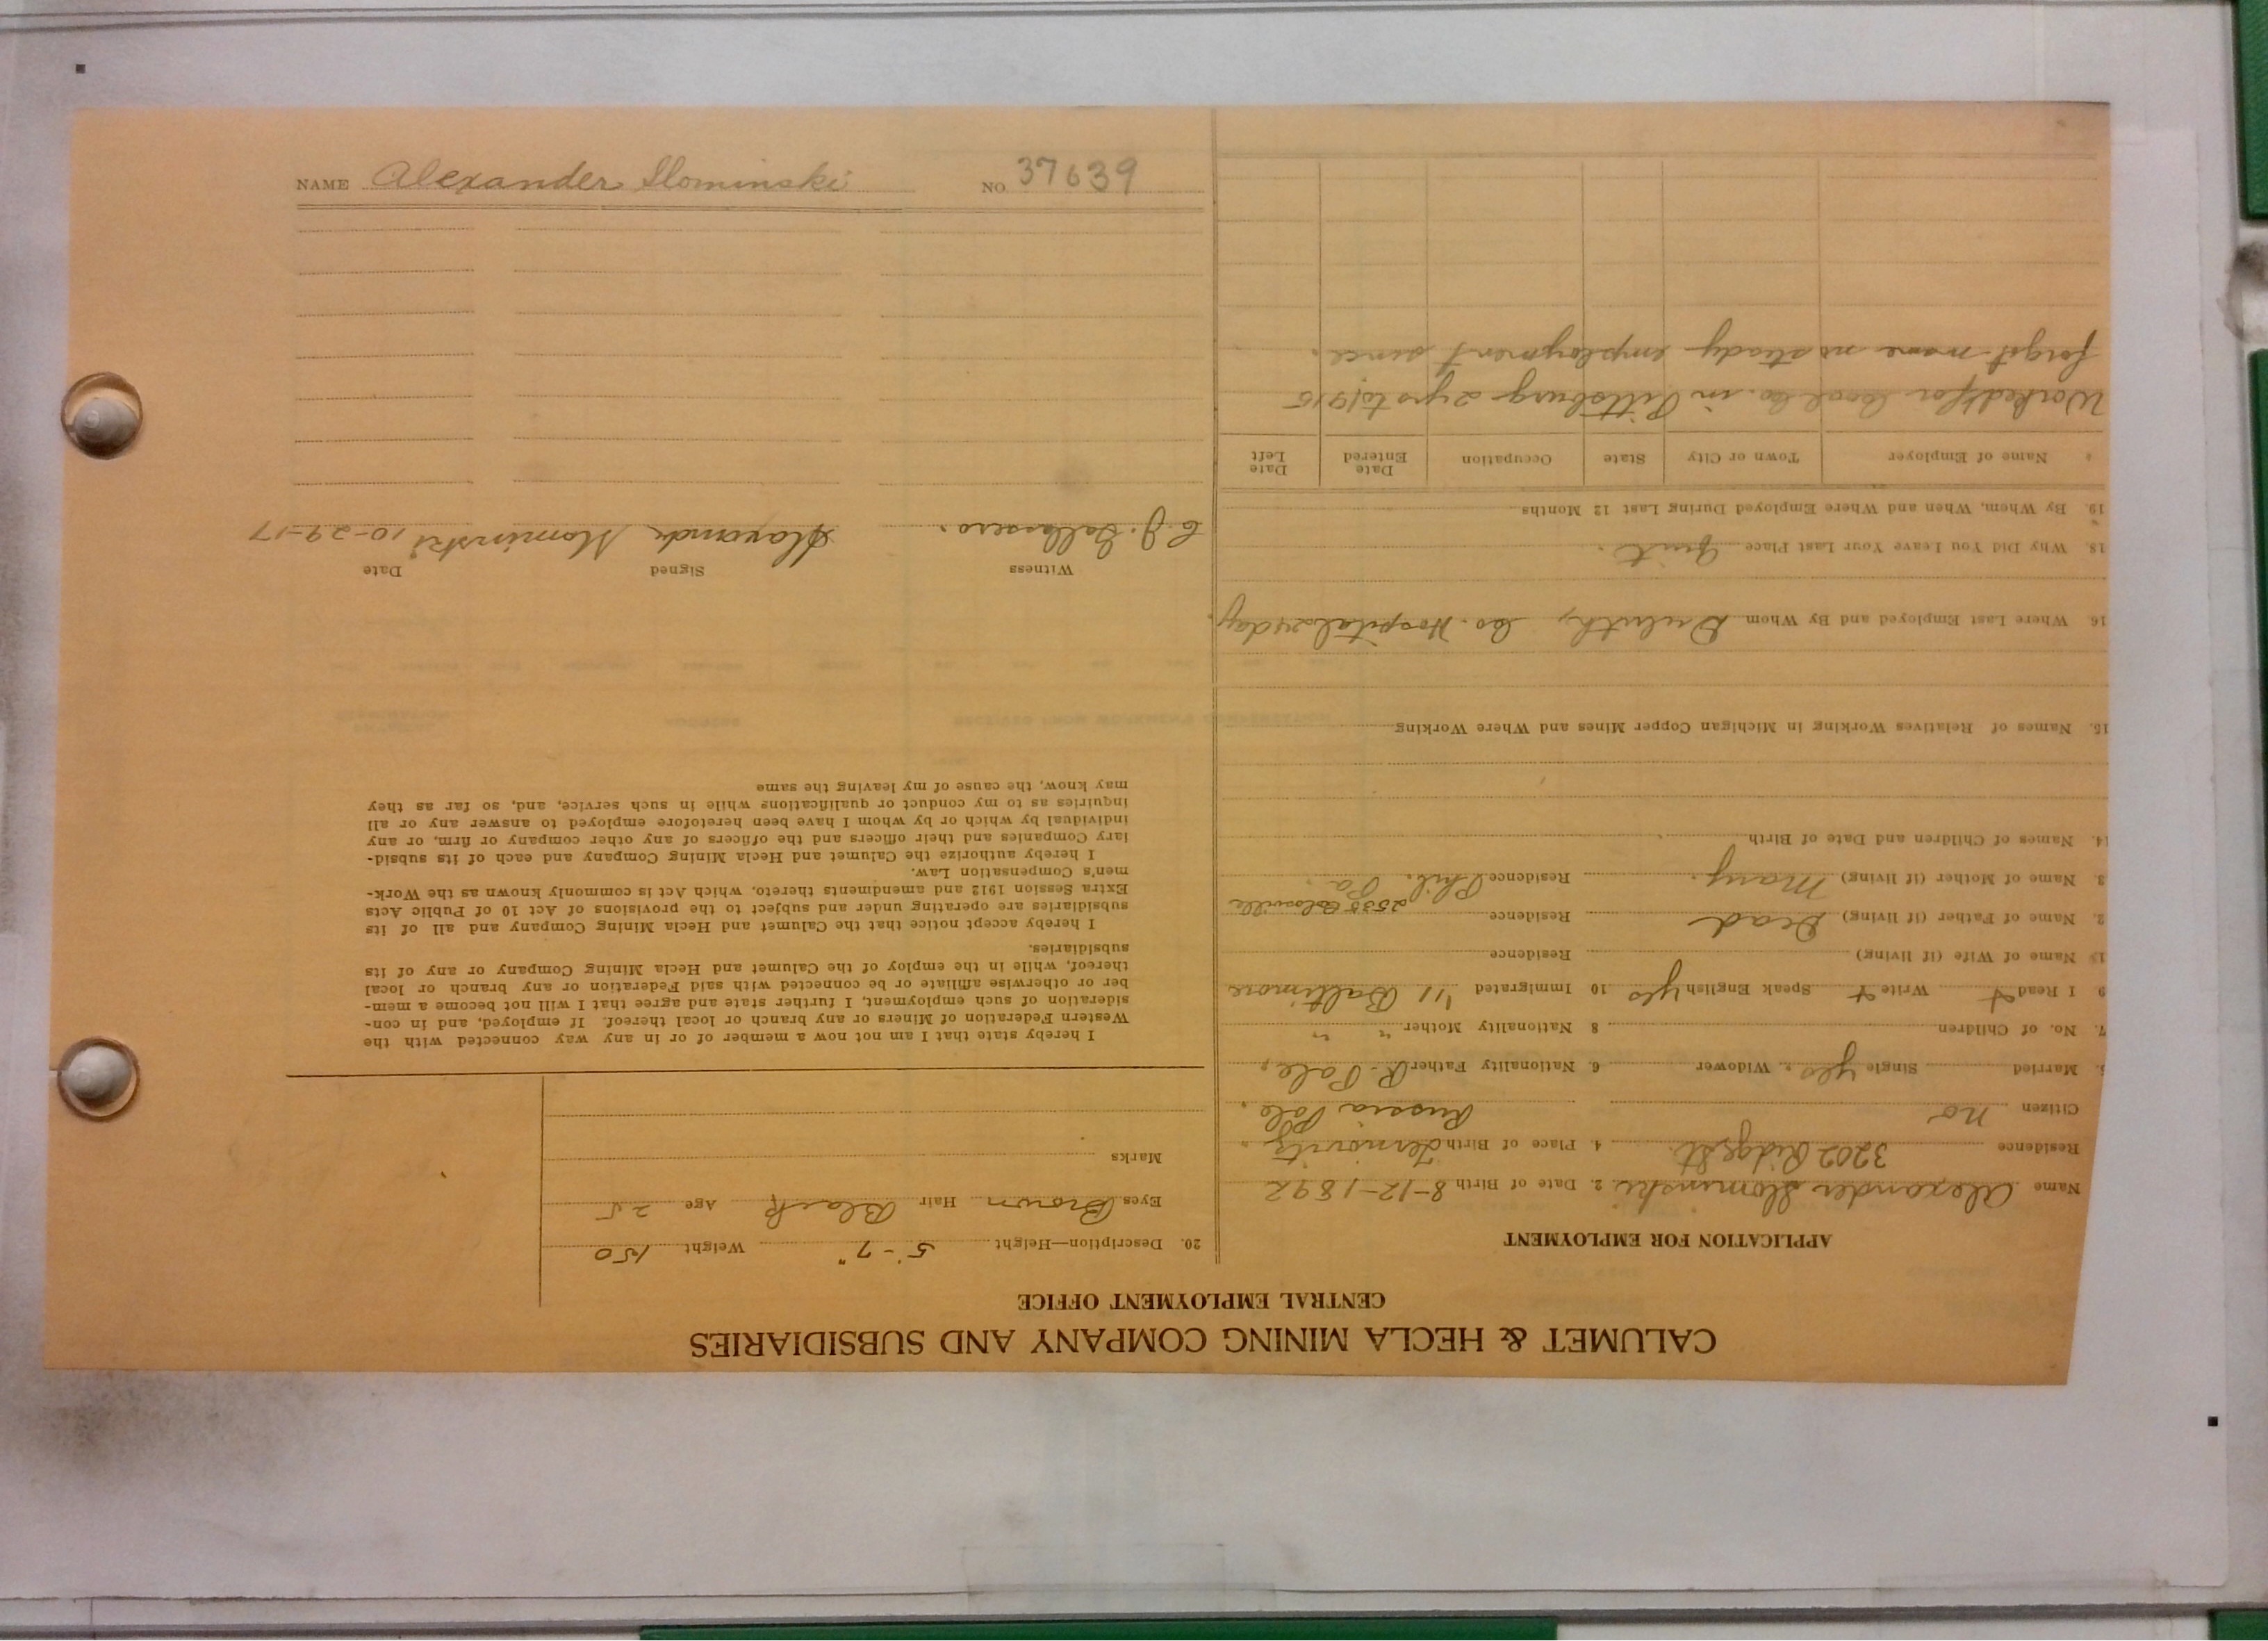 NAME Alexander Slominski NO 37639
CALUMET & HECLA MINING COMPANY AND SUBSIDIARIES
CENTRAL EMPLOYMENT OFFICE
APPLICATION FOR EMPLOYMENT
Name Alexander Slominski 2. Date of Birth 8-12-1892
Residence 3202 Ridge St. 4. Place of Birth
Citizen no Russia Pole.
Married Single yes. Widower 6. Nationality Father R. Pole,
7. No. of Children 8 Nationality Mother " "
9 I Read Write Speak English yes 10 Immigrated '11 Baltimore
Name of Wife (if living) Residence
2. Name of Father (if living) Dead Residence 2535
3. Name of Mother (if living) Mary. Residence Phil. Pa.
14. Names of Children and Date of Birth
15. Names of Relatives Working in Michigan Copper Mines and Where Working
16 Where Last Employed and By Whom Duluth, Co. Hospital 24 day.
18. Why Did You Leave Your Last Place Quit.
19. By Whom, When and Where Employed During Last 12 Months
Name of Employer Town or City State Occupation Date Entered Date Left
Worked for Coal Co. in Pittsburg 2 yrs to 1915
forgot name no steady employment since.
20. Description—Height 5'-7" Weight 150
Eyes Brown Hair Black Age 25
Marks
I hereby state that I am not now a member of or in any way connected with the
Western Federation of Miners or any branch or local thereof. If employed, and in con-
sideration of such employment, I further state and agree that I will not become a mem-
ber or otherwise affiliate or be connected with said Federation or any branch or local
thereof, while in the employ of the Calumet and Hecla Mining Company or any of its
subsidiaries.
I hereby accept notice that the Calumet and Hecla Mining Company and all of its
subsidiaries are operating under and subject to the provisions of Act 10 of Public Acts
Extra Session 1912 and amendments thereto, which Act is commonly known as the Work-
men's Compensation Law.
I hereby authorize the Calumet and Hecla Mining Company and each of its subsid-
iary Companies and their officers and the officers of any other company or firm, or any
individual by which or by whom I have been heretofore employed to answer any or all
inquiries as to my conduct or qualifications while in such service, and, so far as they
may know, the cause of my leaving the same
Witness Signed Date
C. J. Slominski 10-29-17